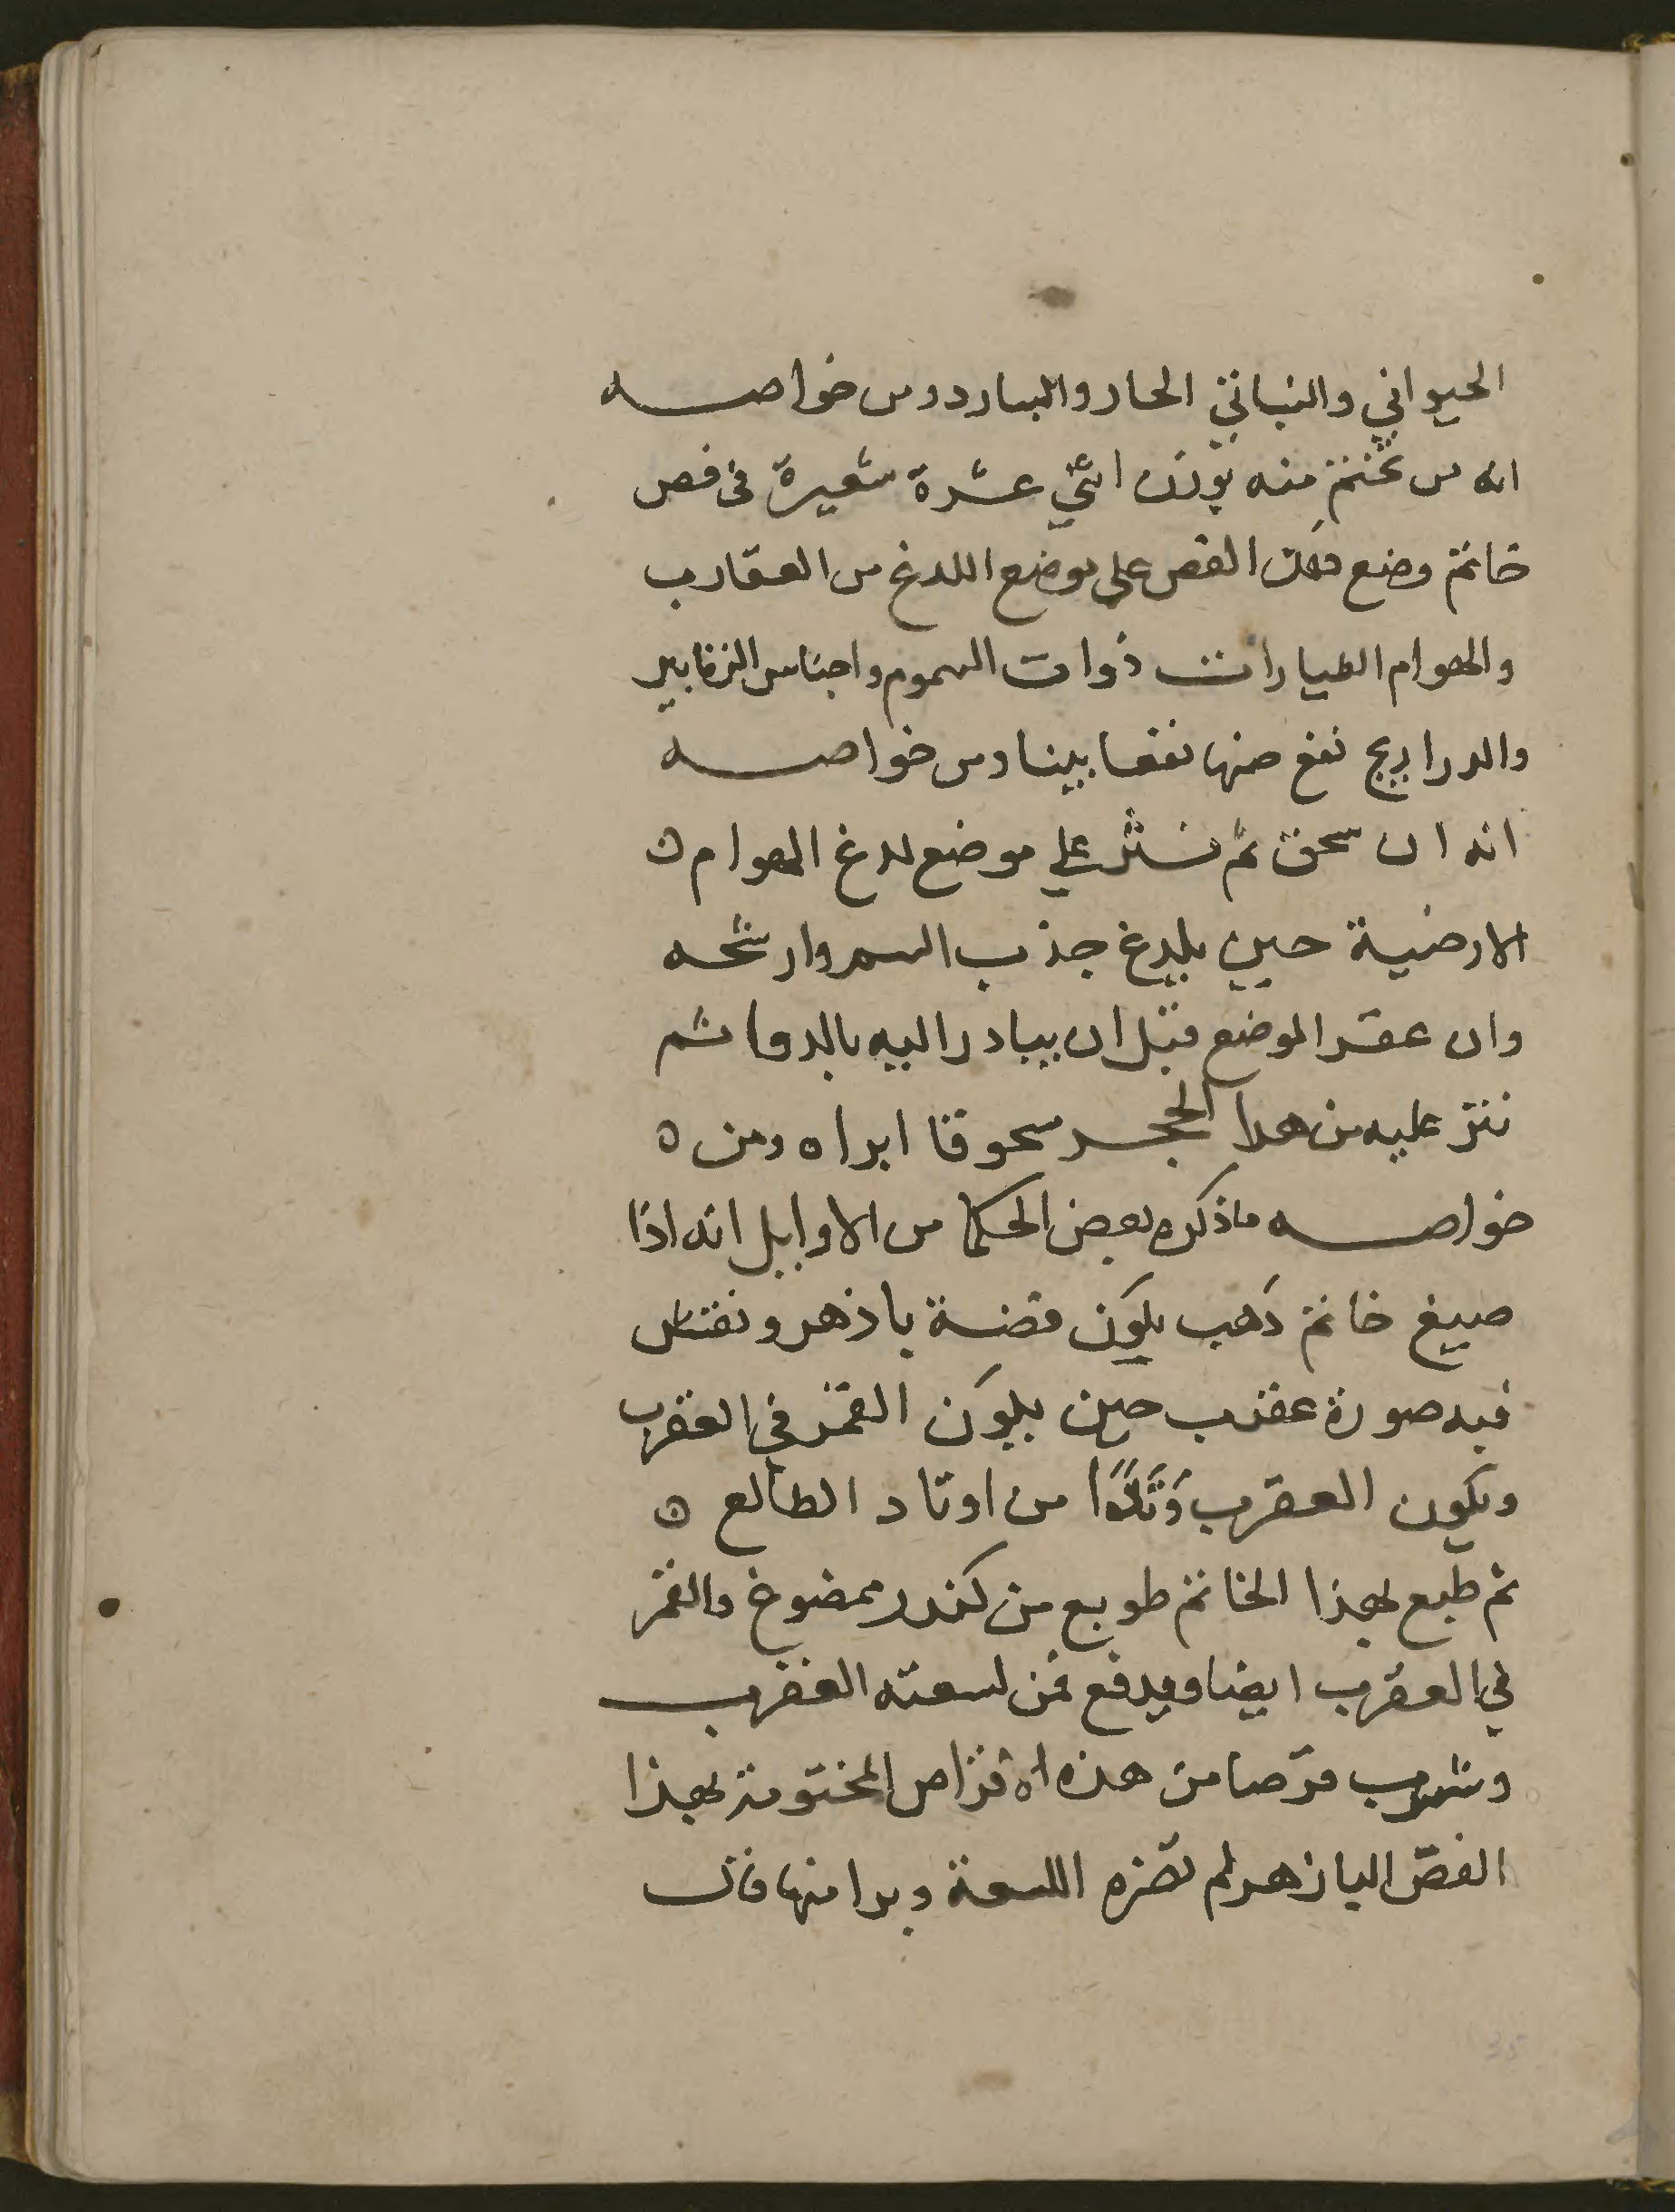 الحيواني والنباتي الحار والبارد ومن خواصه
انه من تختم منه بوزن اثني عشرة شعيرة في فص
خاتم وضع ذلك الفص على موضع اللدغ من العقارب
والهوام الطيارات ذوات السموم واجناس الزنابير
والدراريج نفع منها نفعا بينا ومن خواصه
انه ان سحق ثم نثر علي موضع لدغ الهوام ه
الارضية حين يلدغ جذب السم وارشحه
وان عقر الموضع قبل ان يبادر اليه بالدوا ثم
نثر عليه من هدا الحجر سحوقا ابراه ومن ه
خواصه ماذكره بعض الحكما من الاوايل انه اذا
صيغ خاتم ذهب يكون فضة باذهر ونقش
فيه صورة عقرب حين يكون القمر في العقرب
ويكون العقرب وتدًا من اوتاد الطالع ه
ثم طبع بهذا الخاتم طوبع من كندر ممضوخ والقمر
في العقرب ايضا ويدفع لمن لسعته العقرب
وشرب قرصا من هذه الاقراص المختومة بهذا
الفصّ الباذهر لم تضره اللسعة وبرا منها فان